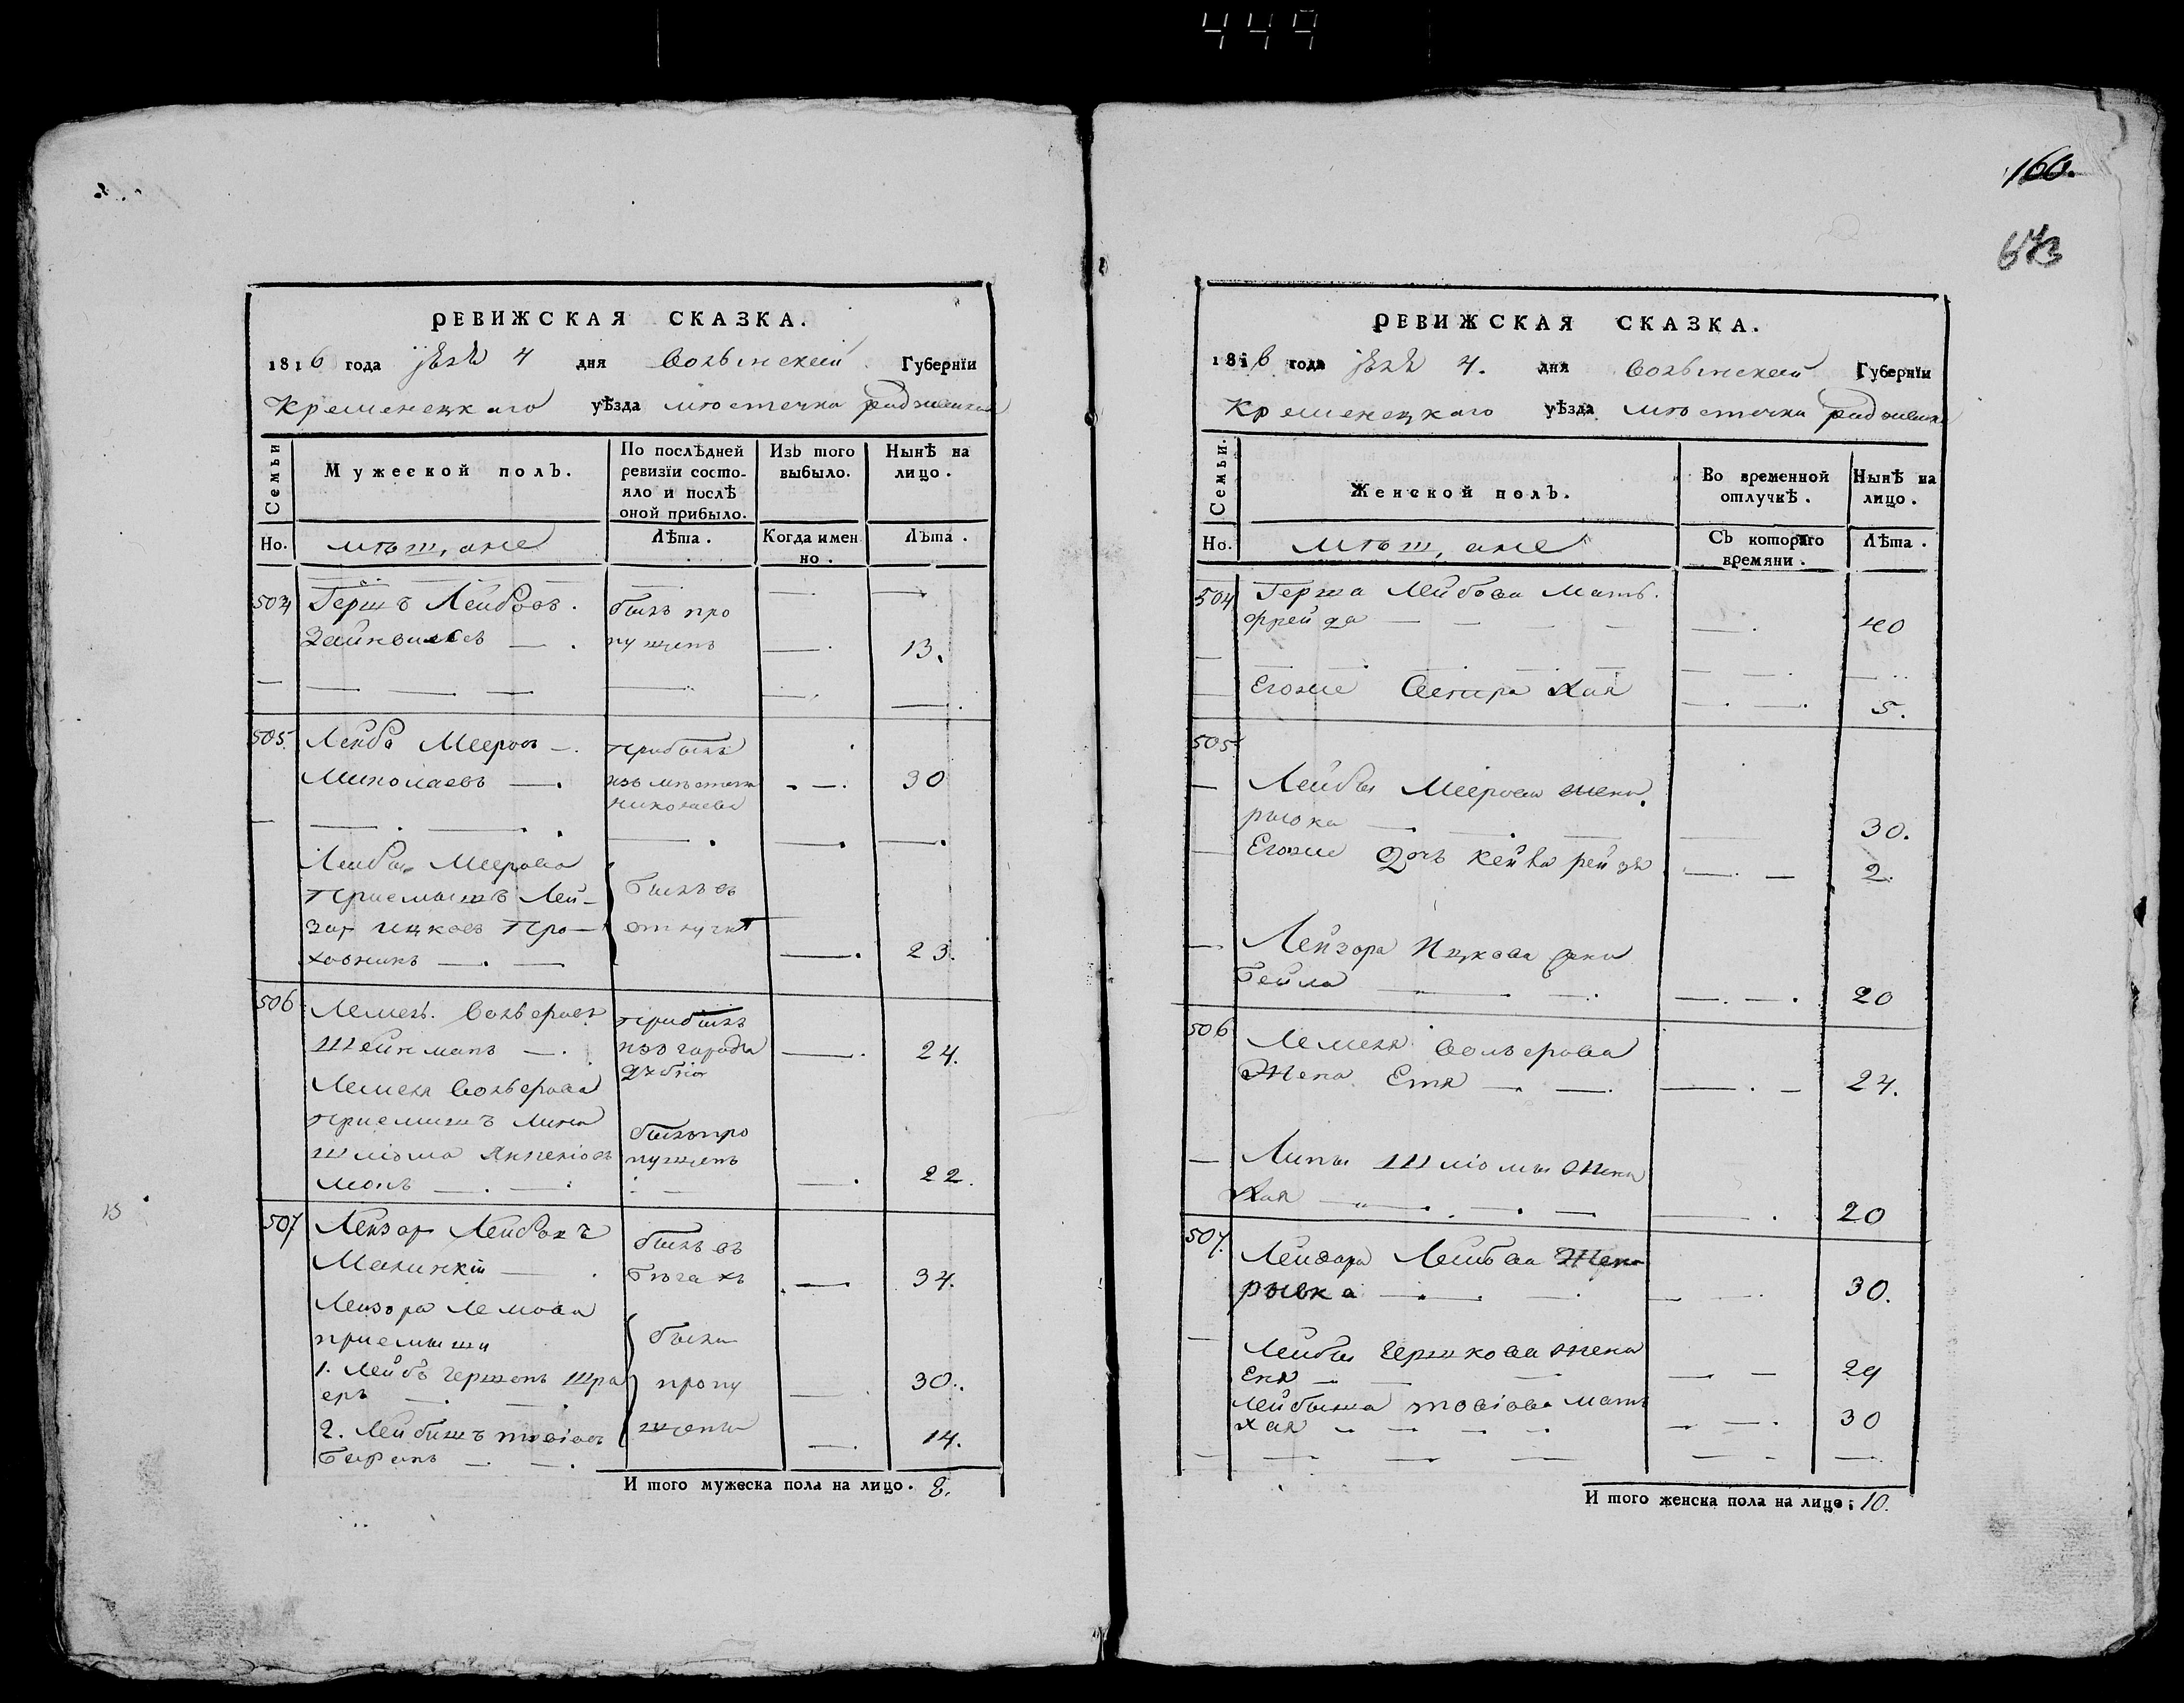 160.
643
РЕВИЖСКАЯ СКАЗКА.
1816 года 4 дня Волынской Губернїи
Кременецкаго уѣзда местечка
Семьи
Мужеской полъ.
По послѣдней ревизїи состо-
яло и послѣ
оной прибыло.
Изъ того
выбыло.
Нынѣ на
лицо.
Но. мѣщане
Лѣта. Когда имен
но. Лѣта.
504 Гершъ Лейбовъ былъ про
пущенъ 13.
505. Лейба Мееровъ прибылъ
Миколаевъ изъ местечка 30
николаева
Лейбы Меерова
приемышъ Лей- былъ въ
зор Ицковъ Про- отлучке
ховникъ 23.
506 Лемель Вольеровъ прибылъ
Шейнманъ изъ города 24.
Дубна
Лемеля Вольерова
приемышъ Липа былъ про
шліома пущенъ
22.
507 Лейзор Лейбовъ былъ въ
бегахъ 34.
Лейзора
приемыши были
1. Лейбъ Гершенъ пропу 30.
2. Лейбишъ товіовъ щены 14.
И того мужеска пола на лицо. 8.
РЕВИЖСКАЯ СКАЗКА.
1816 года 4. дня Волынской Губернїи
Кременецкаго уѣзда местечка
Семьи.
Женской полъ.
Во временной
отлучкѣ.
Нынѣ на
лицо.
Но. мѣщане
Съ котораго
времяни. Лѣта.
504 Герша Лейбова мать
фрейда 40
Егоже сестра Хая 5.
505
Лейбы Меерова жена
рывка 30.
Егоже дочь Рейзя 2.
Лейзора Ицкова жена
Бейла 20
506 Лемеля Вольерова
Жена Етя 24.
Липы Шліомы жена
Хая 20
507. Лейзора Лейбова Жена
рывка 30.
Лейбы Гершкова жена
Еня 29
Лейбыша товіова мать
Хая 30
И того женска пола на лицо: 10.